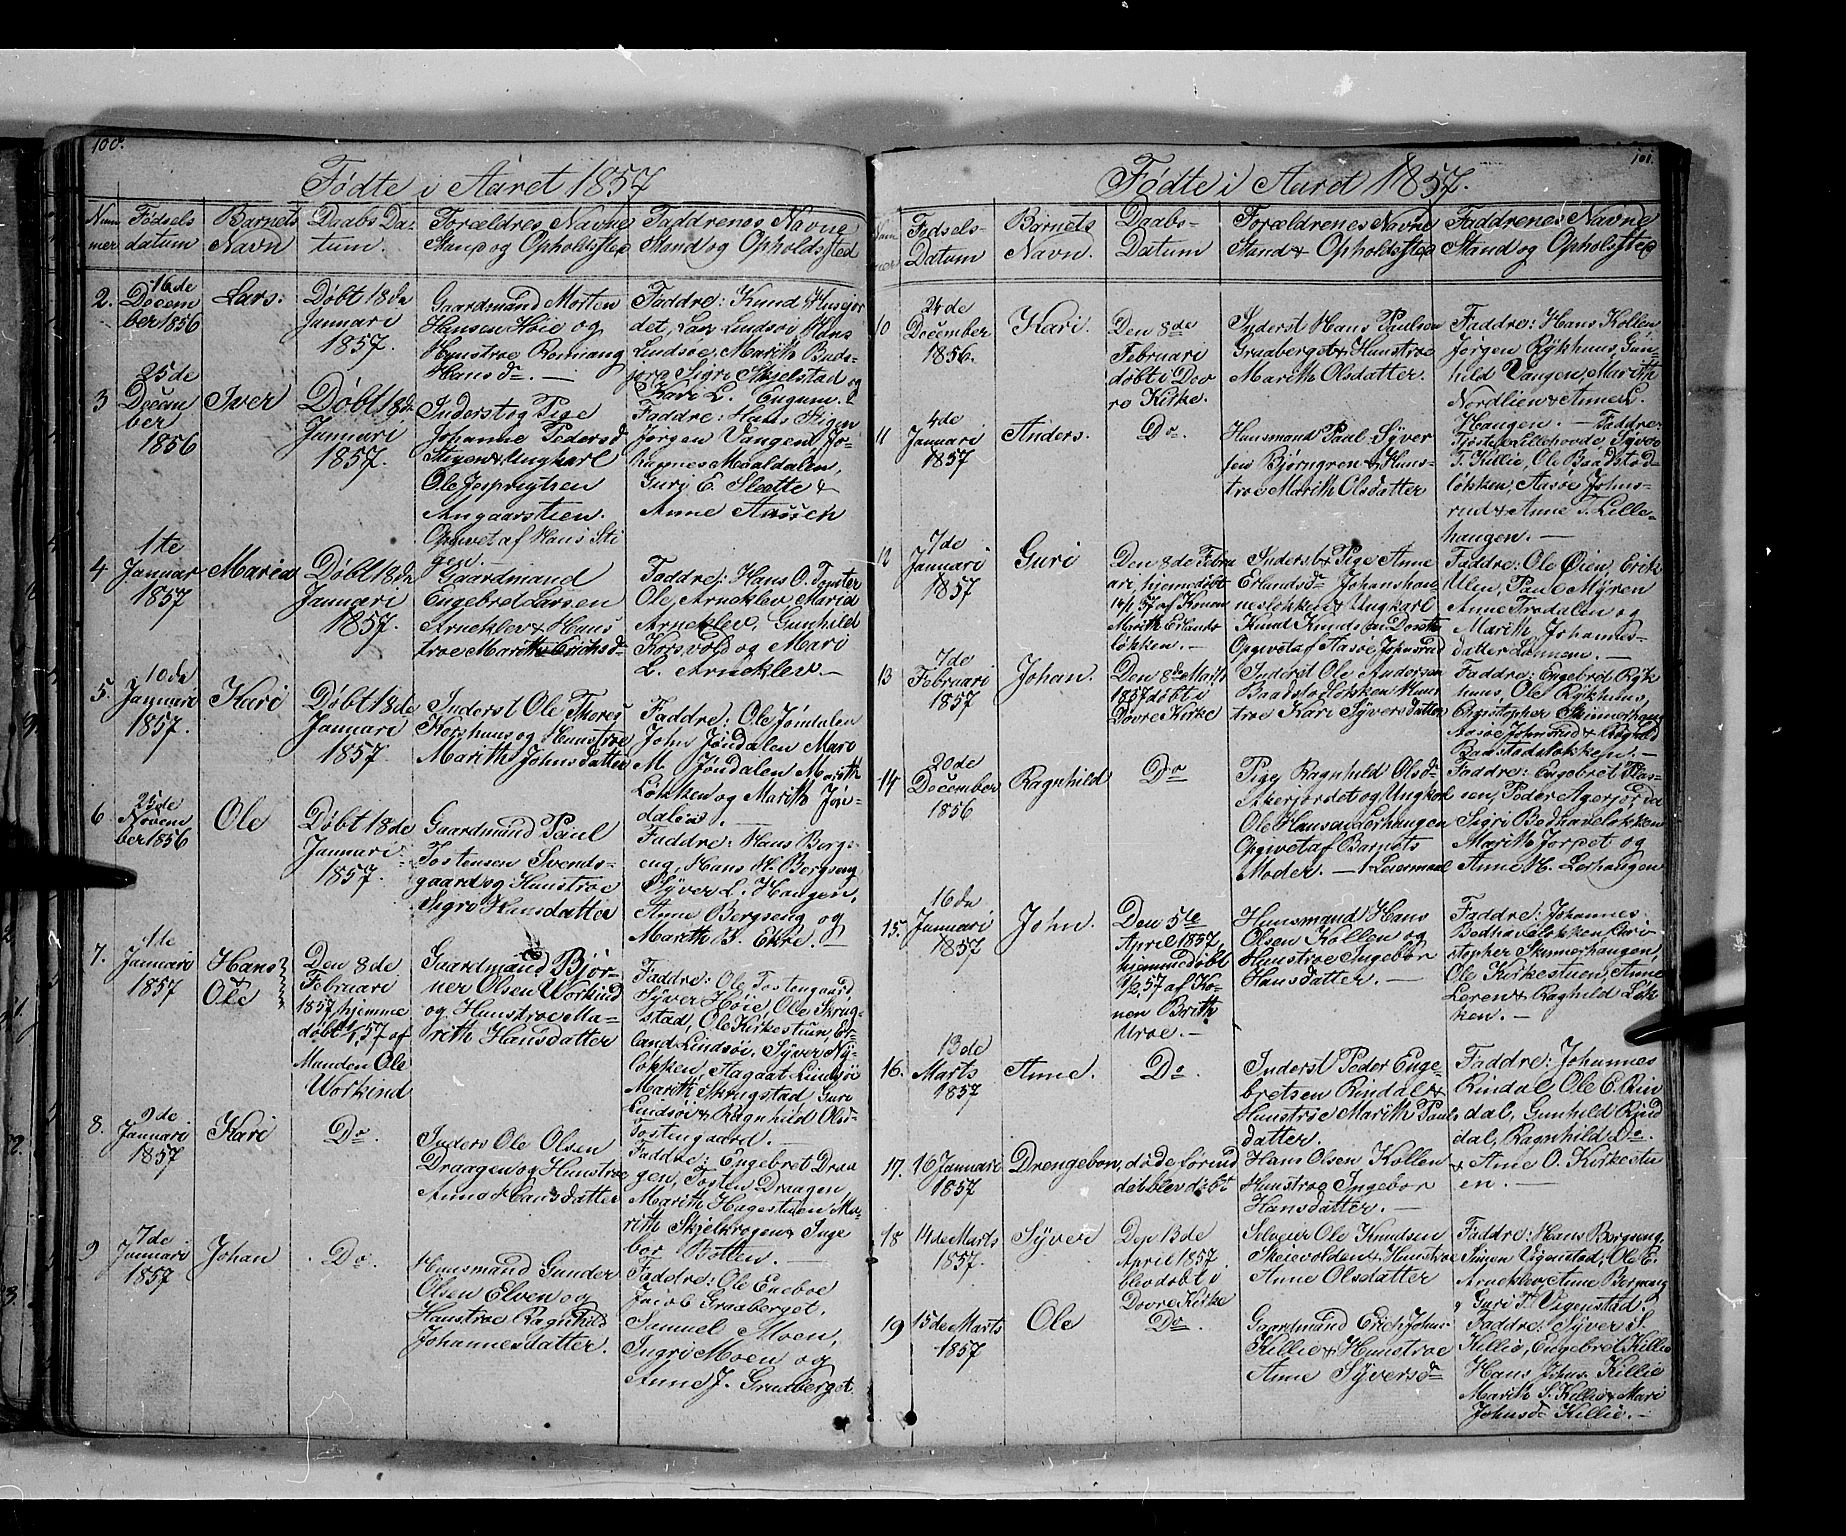 100.
Fødte i Aaret 1857
Num
mer
Fødsels
datum
Barnets
Navn
Daabs Da=
tum.
Forældres Navne
Stand og Opholdsted
Faddrenes Navne
Stand og Opholdssted
2.
16de
Decem
ber 1856
Lars.
Døbt 18de
Januari
1857.
Gaardmand Morten
Hansen Høie og
Hustroe Ronnang
Hansd. —
Faddre: Knud Husejor
det, Lars Lindsøe, Hans
Lindsøe, Marith Buds-
jord, Sigri Skjelstad og
Kari L. Engum.
3
25de
Decem
ber
1856
Iver
Døbt 18de
Januari
1857.
Inderst og Pige
Johanne Pedersd
Stigen & Ungkarl
Ole Jespreytsen
Angaarstien.
Opgivet af Hans Sti
gen. —
Faddre: Hans Stigen
Jørgen Vangen, Jo-
hannes Moaldalen,
Guri E. Slette &
Anne Aassen
4
1te
Januar
1857
Maria
Døbt 18de
Januari
1857.
Gaardmand
Engebret Larsen
Arneklev & Hus
troe Marith Erichsd
Faddre: Hans O. Tofter
Ole Arneklev Maria
Arneklev, Gunhild
Korsvold og Mari
L. Arneklev. —
5.
10de
Januari
1857.
Kari
Døbt 18de
Januari
1857.
Inderst Ole Thores
Korshaus og Hustroe
Marith Johnsdatter
Faddre: Ole Jøndalen
John Jøndalen Mari
M. Jøndalen Marith
Løkken og Marith Jøn-
dalen. —
6
25de
Novem
ber 1856
Ole
Døbt 18de
Januari.
1857.
Gaardmand Paul
Tostensen Svends-
gaard og Hustroe
Sigri Hansdatter
Faddre: Hans Bergs-
eng, Hans H. Bergseng
Syver L. Haugen,
Anne Bergseng og
Marith B. Ekre. —
7.
1te
Januari
1857
Hans
Ole
Den 8de
Februari
1857, hjemme
døbt 57 af
Manden Ole
Workind
Gaardmand Bjør-
ner Olsen Workind
og Hustroe Ma-
rith Hansdatter
Faddre: Ole Tostengaard,
Syver Høie, Ole Skrug-
stad, Ole Kirkestuen, Er-
land Lindsøe, Syver Ny-
løkken, Aagaat Lindsøe
Marith Skrugstad, Guri
Lindsøe & Ragnhild Olsd-
Tostengaard. —
8.
2de
Januari
1857
Kari
Do.
Inders Ole Olsen
Draagen og Hustroe
Anne Hansdatter
Faddre: Engebret Draa
gen, Tosten Draagen,
Marith Hagestuen Ma
rith Skjelkrogen & Inge
bor Botten. —
9
7de
Januari
1857
Johan
Do.
Huusmand Gunder
Olsen Elven og
Hustroe Ragnhild
Johannesdatter.
Faddre: Ole Eneboe
Jacob Graaberget.
Semuel Moen,
Ingri Moen og
Anne J. Graaberget.
101.
Fødte i Aaret 1857.
Num
mer
Fødsels-
Datum
Barnets
Navn.
Daabs-
Datum
Forældrenes Navne
Stand & Opholdsted
Faddrenes Navne
Stand og Opholsted
10
24de
December
1856.
Kari.
Den 8de
Februari
døbt i Dov
re Kirke.
Inderst Hans Paulsen
Graaberget & Hustroe
Marith Olsdatter.
Faddre: Hans Kollen
Jørgen Rykhuus, Gun-
hild Vangen, Marith
Nordlien & Anne L.
Haugen. —
11
4de
Januari
1857
Anders.
Do.
Huusmand Paal Syver
sen Bjørngren & Hus-
troe Marith Olsdatter
Faddre
Tjøstel Lillehovde Syver
T. Killie, Ole Baadstad-
løkken, Aasøe Johns-
rud & Anne T. Lille-
haugen. —
12
7de
Januari
1857
Guri
Den 8de Febru
ari, hjemmedøbt
14/1 57 af Konen
Marith Erlands
løkken. —
Inderst & Pige Anne
Erlandsd. Johanshan
neslokken & Ungkarl
Knud Knudsen Dovre
Opgivet af Aasøe Johnsrud
Faddre: Ole Øien, Erik
Ulen, Paul Myren
Anne Trødalen og
Marith Johannes-
datter Lønnem. —
13
7de
Februari
1857
Johan.
Den 8de Marts
1857 døbt i
Dovre Kirke
Inderst Ole Andersen
Baadstadløkken & Hus
troe Kari Syversdatter
Faddre: Engebret Ryk
huus, Ole Rykhuus,
Christopher Skinnerhaug
Aasøe Johnsrud &
Baastadløkken. —
14
20de
December
1856
Ragnhild
Do
Pige Ragnhild Olsd-
Akerjordet og Ungkarl
Ole Hansen Lerhaugen
Opgivet af Barnets
Moder. — 1 Leiermaal
Faddre: Engebret Plas-
sen, Peder Agerjordet
Sigri Bedhaveløkken
Marith Jorpet og
Anne H. Lerhaugen
15.
16de
Januari
1857
John.
Den 5te
April 1857,
hjemmedøbt
1/2 57 af Ko-
nen Brith
Uroe. —
Huusmand Hans
Olsen Kollen og
Hustroe Ingebor
Hansdatter. —
Faddre: Johannes
Bedhaveløkken Chri
stopher Skinnerhaugen,
Ole Kirkestuen, Anne
Leren & Raghild Løk
ken. —
16.
13de
Marts
1857
Anne.
Do.
Inderst Peder Enge-
bretsen Rindal &
Hustroe Marith Pauls
datter.
Faddre: Johannes
Rindal Ole E. Rin
dal, Gunhild Rind
dal, Ragnhild Do.
& Anne O. Kirkestu
en. —
17.
16 Januari
1857
Drengebon,
døde forind
det blev døbt
Hans Olsen Kollen
Hustroe Ingebor
Hansdatter. —
18
14de Marts
1857.
Syver
Den 13de
April 1857
blev døbt i
Dovre Kirke
Selveier Ole Knudsen
Skeievolden & Hustroe
Anne Olsdatter
Faddre: Hans Bergseng,
Simen Vigenstad, Ole E.
Arneklev Anne Bergseng
og Guri T. Vigenstad.
19
15de Marts
1857
Ole
Do.
Gaardmand Erich Johns.
Killie & Hustroe
Anne Syversd
Faddre: Syver S.
Killie, Engebret Killie
Hans Johns. Killie
Marith S. Killie & Mari
Johnsd Killie. —